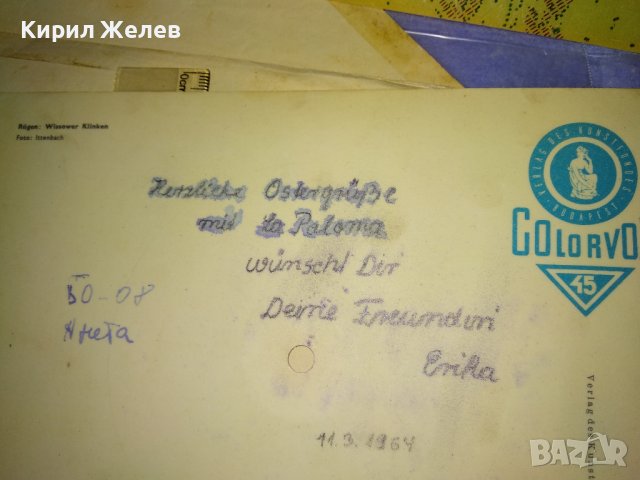 Кирил Желев
Rügen: Wissower Klinken
Foto: Ittenbach
Herzliche Ostergrüße
mit La Paloma
wünscht Dir
Deine Freundin
Erika
11.3.1964
50-08
Анета
VERLAG DES KUNSTFONDES
BUDAPEST
COLORVO
45
Verlag des Kunst
BAZAR